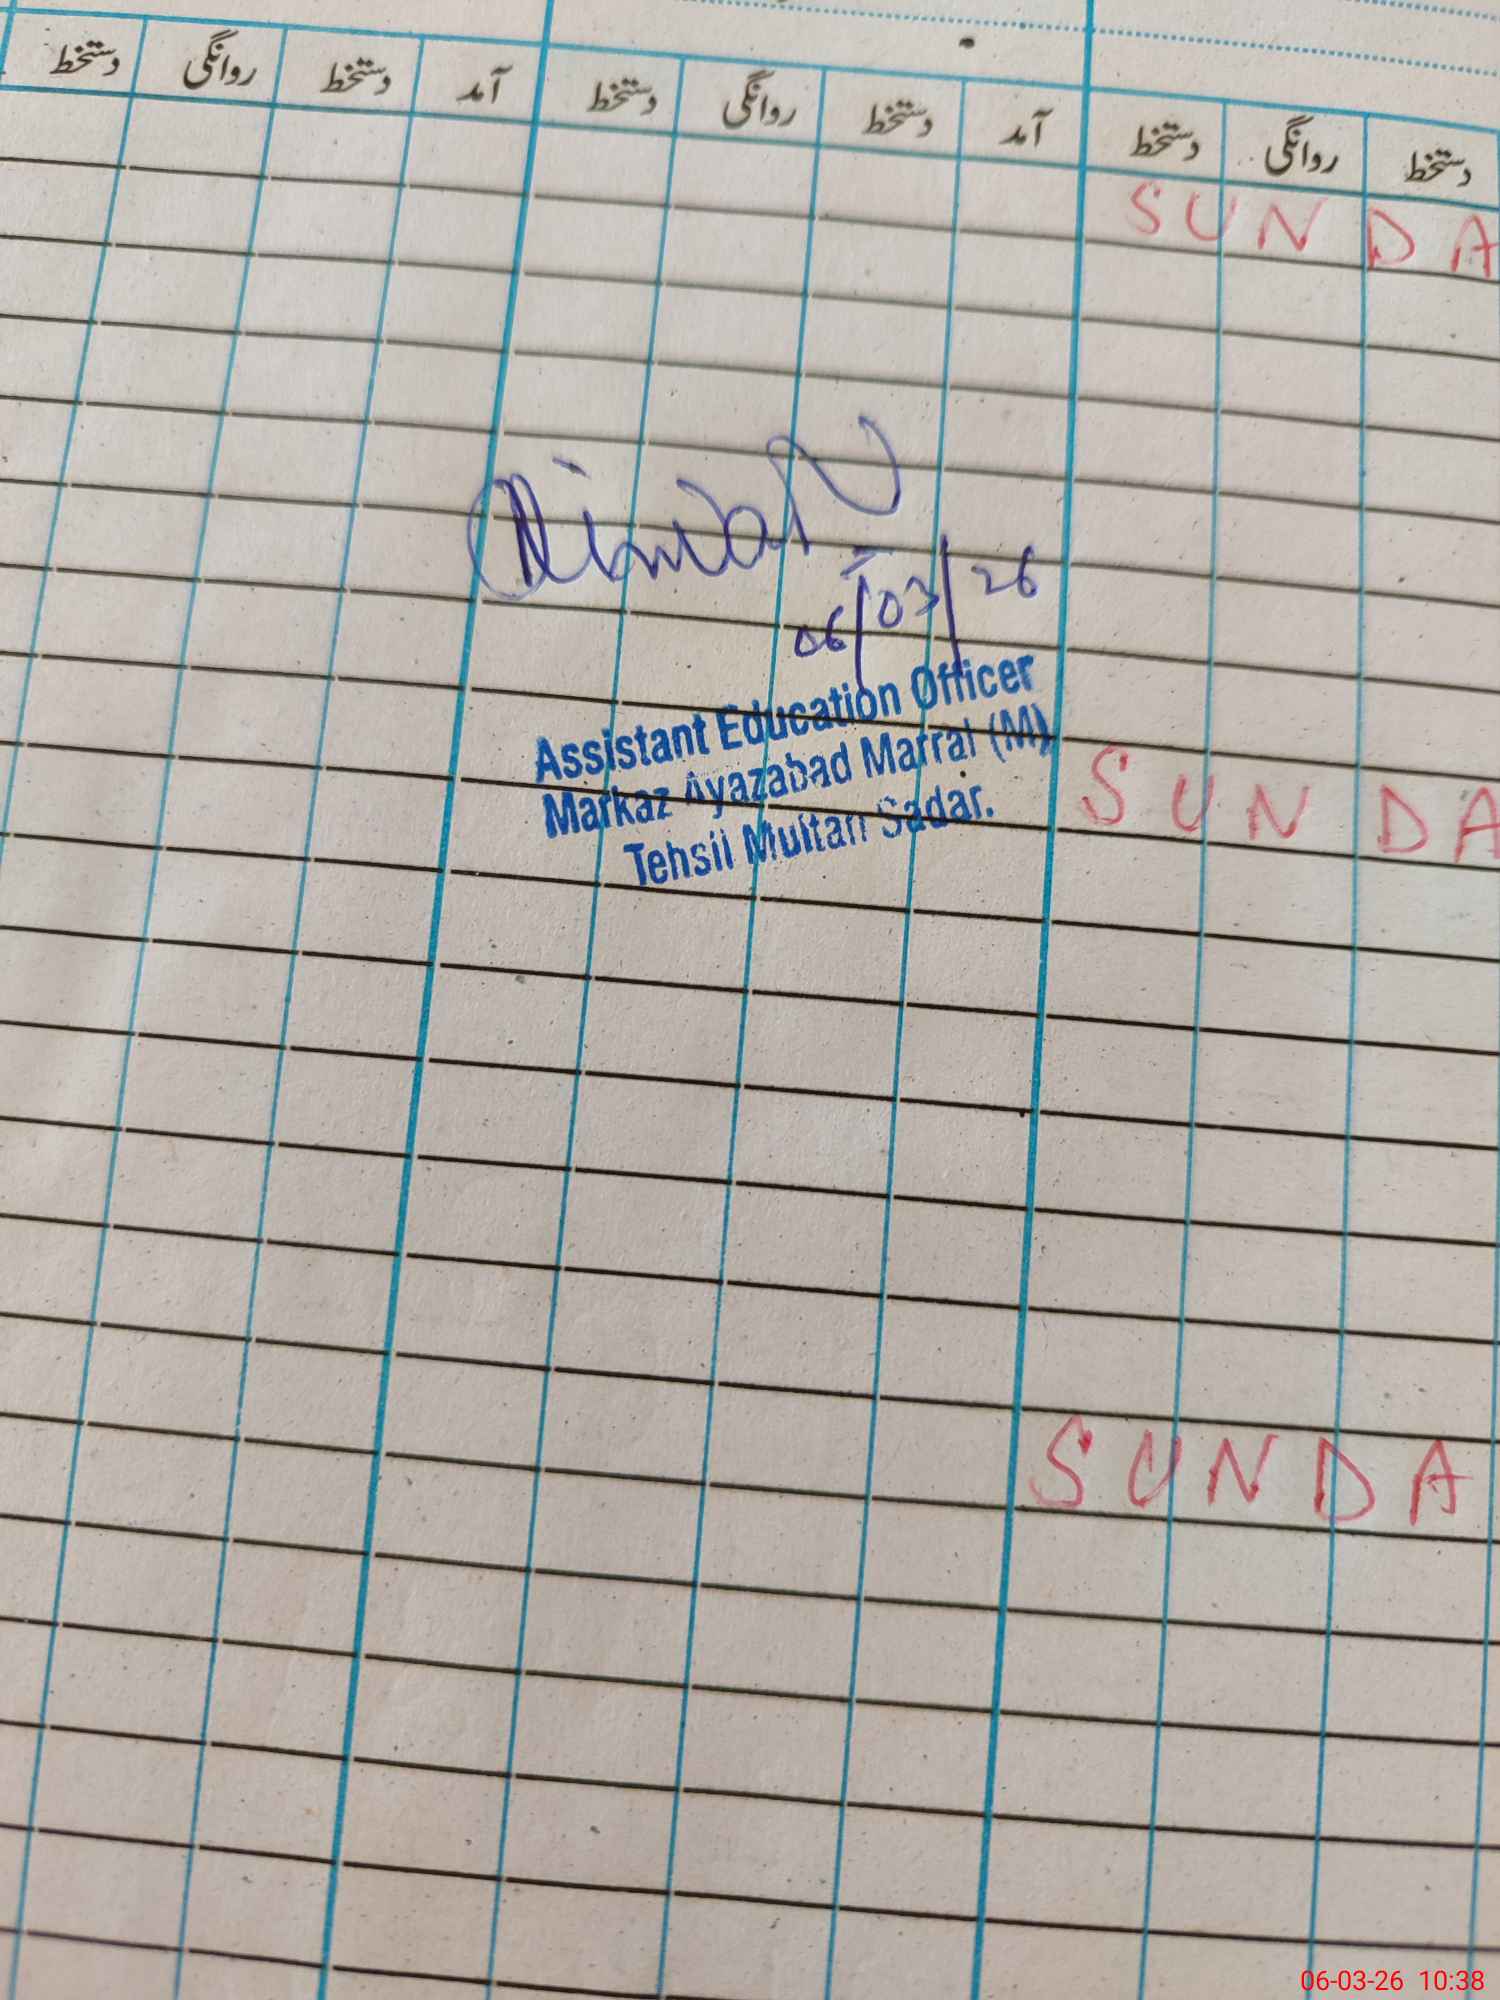 دستخط روانگی دستخط آمد دستخط روانگی دستخط آمد دستخط روانگی دستخط
SUNDA
06/03/26
Assistant Education Officer
Markaz Ayazabad Marral (M)
Tehsil Multan Sadar.
SUNDA
SUNDA
06-03-26 10:38